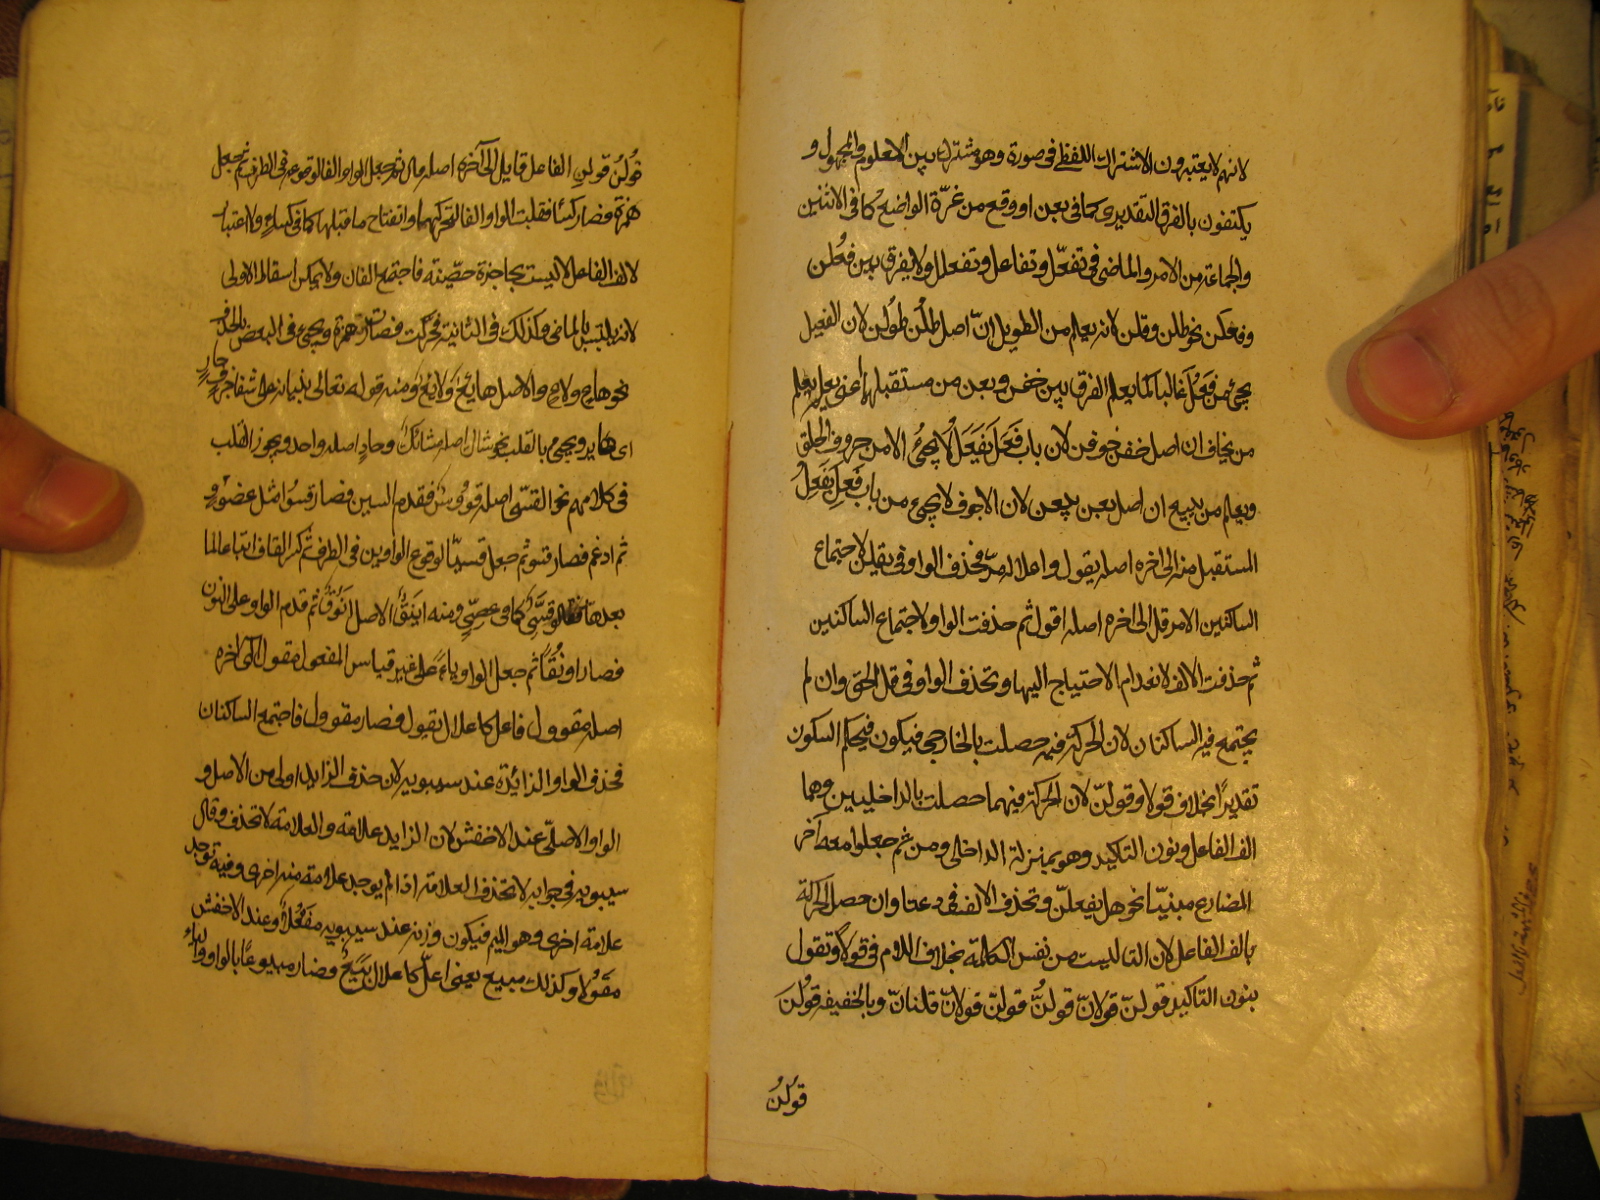 لانهم لا يعتبرون الاشتراك اللفظى فى صورة وهو مشترك بين المعلوم والمجهول و
يكتفون بالفرق التقديرى كما فى بعن او وقع من غرّة الواضع كما فى الاثنين
والجماعة من الامر والماضى فى تفعّل وتفاعل وتفعلل ولا يفرق بين فعُلن
وفعَلن نحو طلن وقلن لانه يعلم من الطويل انّ اصل طلن طولن لان الفعيل
يجئ من فعُل غالبا كما يعلم الفرق بين خفن وبعن من مستقبلهما أعنى يعلم
من يخاف ان اصل خفن خوفن لان باب فَعَل يَفعَل لا يجئ الا من حروف الحلق
ويعلم من يبيع ان اصل بعن بيعن لان الاجوف لا يجئ من باب فَعِل يَفعِل
المستقبل منه الى اخره اصله يقول واعلاله مرّ فحذف الواو فى يقلن لاجتماع
الساكنين الامر قل الى اخره اصله اقول ثم حذفت الواو لاجتماع الساكنين
ثم حذفت الالف لانعدام الاحتياج اليها وتحذف الواو فى قل الحق وان لم
يجتمع فيه الساكنان لان الحركة فيه حصلت بالخارجى فيكون فى حكم السكون
تقديرًا بخلاف قولا وقولنّ لان الحركة فيهما حصلت بالداخليين وهما
الف الفاعل ونون التاكيد وهو بمنزلة الداخلى ومن ثم جعلوا معه آخر
المضارع مبنيّا نحو هل يفعلنّ وتحذف الالف فى دعتا وان حصل الحركة
بالف الفاعل لان التا ليست من نفس الكلمة بخلاف اللام فى قولا وتقول
بنون التاكيد قولنّ قولانّ قولُنّ قولِنّ قولانّ قلنانّ وبالخفيفه قولَن
قولُن
قولُن قولِن الفاعل قايل الى آخره اصله قاول ثم جعل الواو الفا لوقوعه فى الطرف ثم جعل
همزة فصار كسئا فقلبت الواو الفا لتحركها وانفتاح ما قبلها كما فى كساء ولا اعتبار
لالف الفاعل لانها ليست بحاجزة حصينة فاجتمع الفان ولا يمكن اسقاط الاولى
لانه يلتبس بالماضى وكذلك فى الثانية فحركت فصارت همزة ويجئ فى البعض بالحذف
نحو هاع ولاع والاصل هايع ولايع ومنه قوله تعالى بنيانه على شفا جرف هارٍ
اى هاير ويجئ بالقلب نحو شاك اصله شائك وحادٍ اصله واحد ويجوز القلب
فى كلامهم نحو القسّى اصله قووس فقدم السين فصار قسوو مثل عضوو
ثم ادغم فصار قسوّ ثم جعل قسيّا لوقوع الواوين فى الطرف ثم كسر القاف اتباعا لما
بعدها كما فى عصىّ ومنه اينق الاصل انوق ثم قدم الواو على النون
فصار اونقا ثم جعل الواو ياء على غير قياس المفعول مقول الى اخره
اصله مقوول فاعل كاعلال يقول فصار مقوول فاجتمع الساكنان
فحذف الواو الزائدة عند سيبويه لان حذف الزايد اولى من الاصل و
الواو الاصلى عند الاخفش لان الزايد علامة والعلامة لا تحذف وقال
سيبويه فى جوابه لا تحذف العلامة اذا لم يوجد علامة منه اخرى وفيه توجد
علامة اخرى وهو الميم فيكون وزنه عند سيبويه مفعُلا وعند الاخفش
مقولا وكذلك مبيع يعنى اعلّ كاعلال يبيع فصار مبيوعًا بالواو والياء